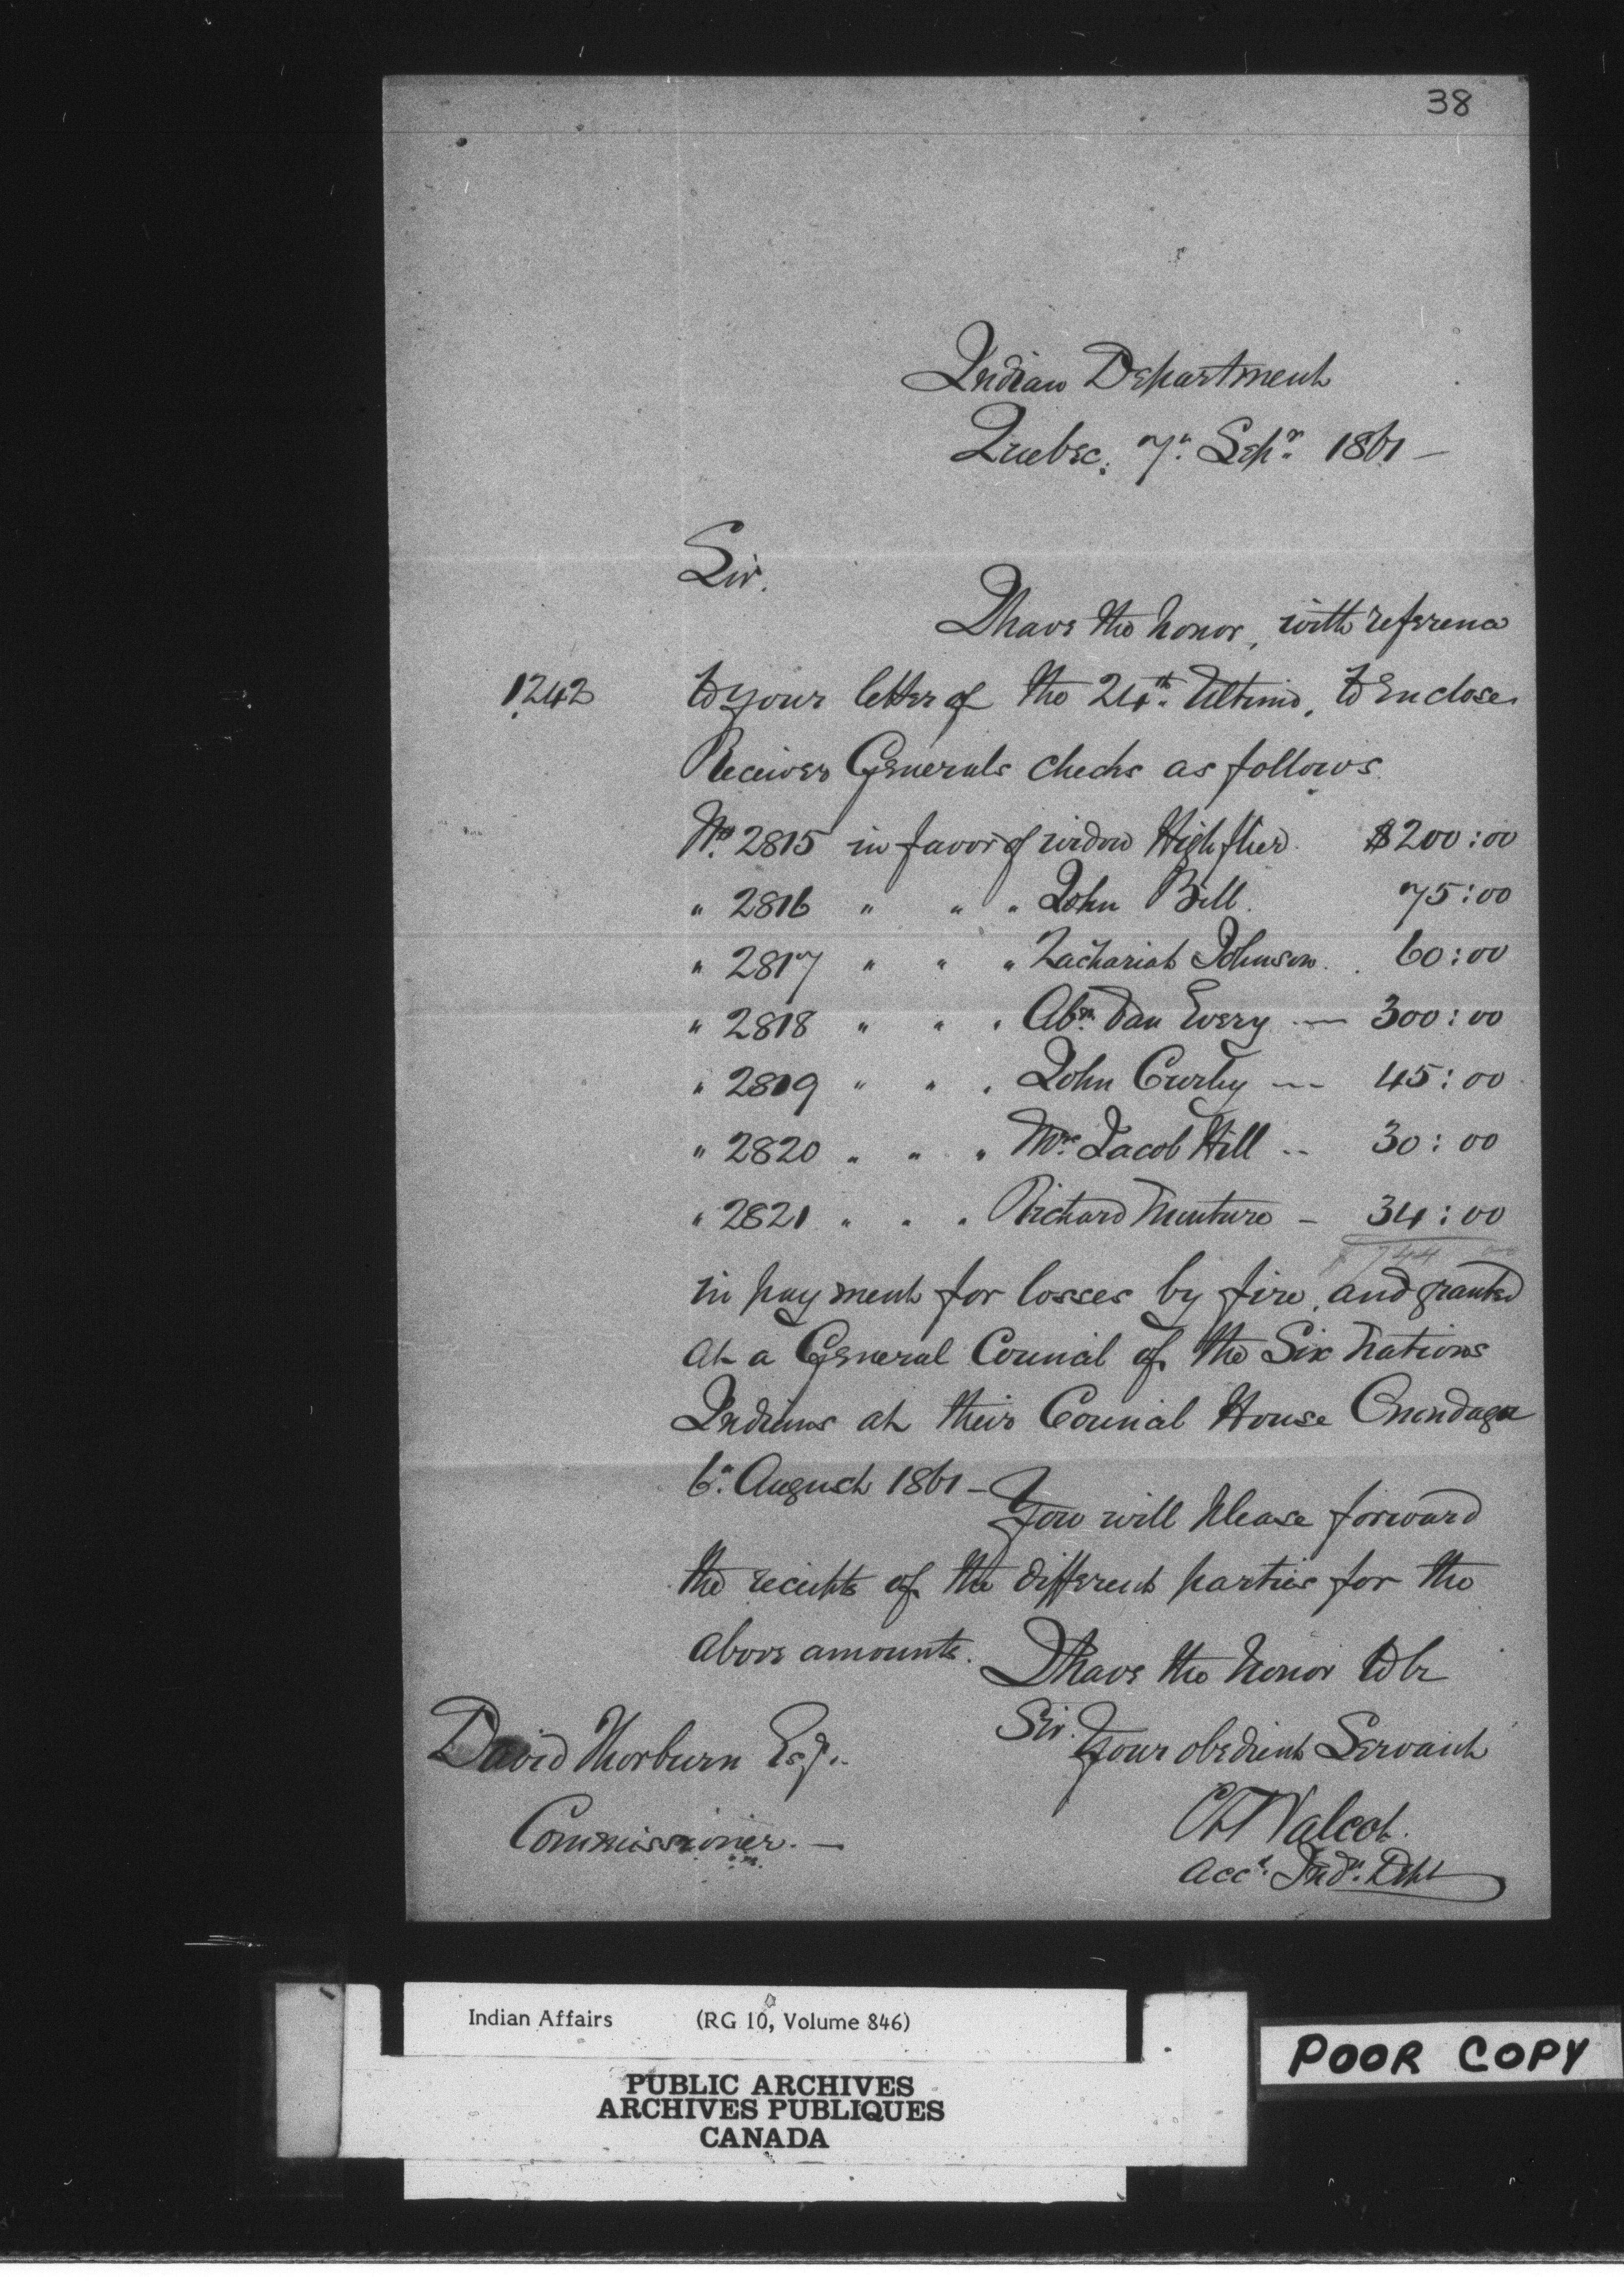 38
Indian Department
Quebec. 7th Sepr 1861 —
Sir.
I have the honor, with reference
1242 to your letter of the 24th Ultimo, to enclose
Receiver Generals checks as follows.
No. 2815 in favor of widow Highflier. $200:00
" 2816 " " " John Bill. 75:00
" 2817 " " " Zachariah Johnson. 60:00
" 2818 " " " Abm. Van Every — 300:00
" 2819 " " " John Curley --- 45:00
" 2820 " " " Mrs Jacob Hill -- 30:00
" 2821 " " " Richard — 34:00
744 00
in payment for losses by fire, and granted
at a General Council of the Six Nations
Indians at their Council House Onondaga
6th August 1861 —
You will please forward
the receipts of the different parties for the
above amounts.
I have the honor to be
Sir.
Your obedient Servant
C T Walcot.
Acct. Indn. Dept
David Thorburn Esqr.
Commissioner. —
Indian Affairs (RG 10, Volume 846)
PUBLIC ARCHIVES
ARCHIVES PUBLIQUES
CANADA
POOR COPY